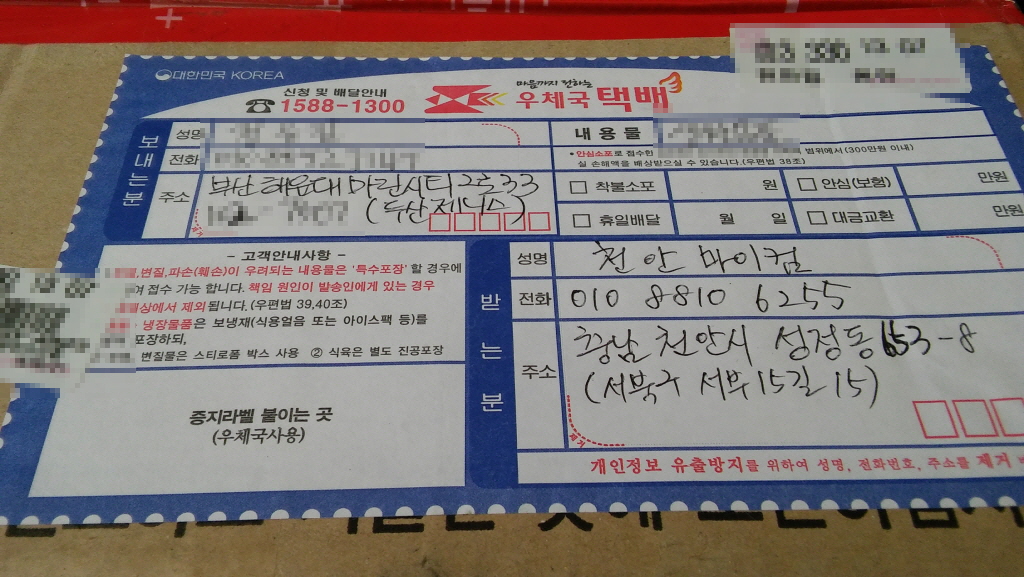 대한민국 KOREA
신청 및 배달안내
☎ 1588-1300
마음까지 전하는
우체국 택배
보내는분
성명
전화
주소
부산 해운대 마린시티 2로 33
(두산 제니스)
제거
내용물
• 안심소포로 접수한 범위에서 (300만원 이내)
실 손해액을 배상받으실 수 있습니다.(우편법 38조)
□ 착불소포 원 □ 안심(보험) 만원
□ 휴일배달 월 일 □ 대금교환 만원
- 고객안내사항 -
변질,파손(훼손)이 우려되는 내용물은 '특수포장' 할 경우에
여 접수 가능 합니다. 책임 원인이 발송인에게 있는 경우
배상에서 제외됩니다.(우편법 39,40조)
냉장물품은 보냉재(식용얼음 또는 아이스팩 등)를
포장하되,
변질물은 스티로폼 박스 사용 ② 식육은 별도 진공포장
증지라벨 붙이는 곳
(우체국사용)
받는분
성명
천안 마이컴
전화
010 8810 6255
주소
충남 천안시 성정동 653-8
(서북구 서부15길 15)
제거
개인정보 유출방지를 위하여 성명, 전화번호, 주소를 제거